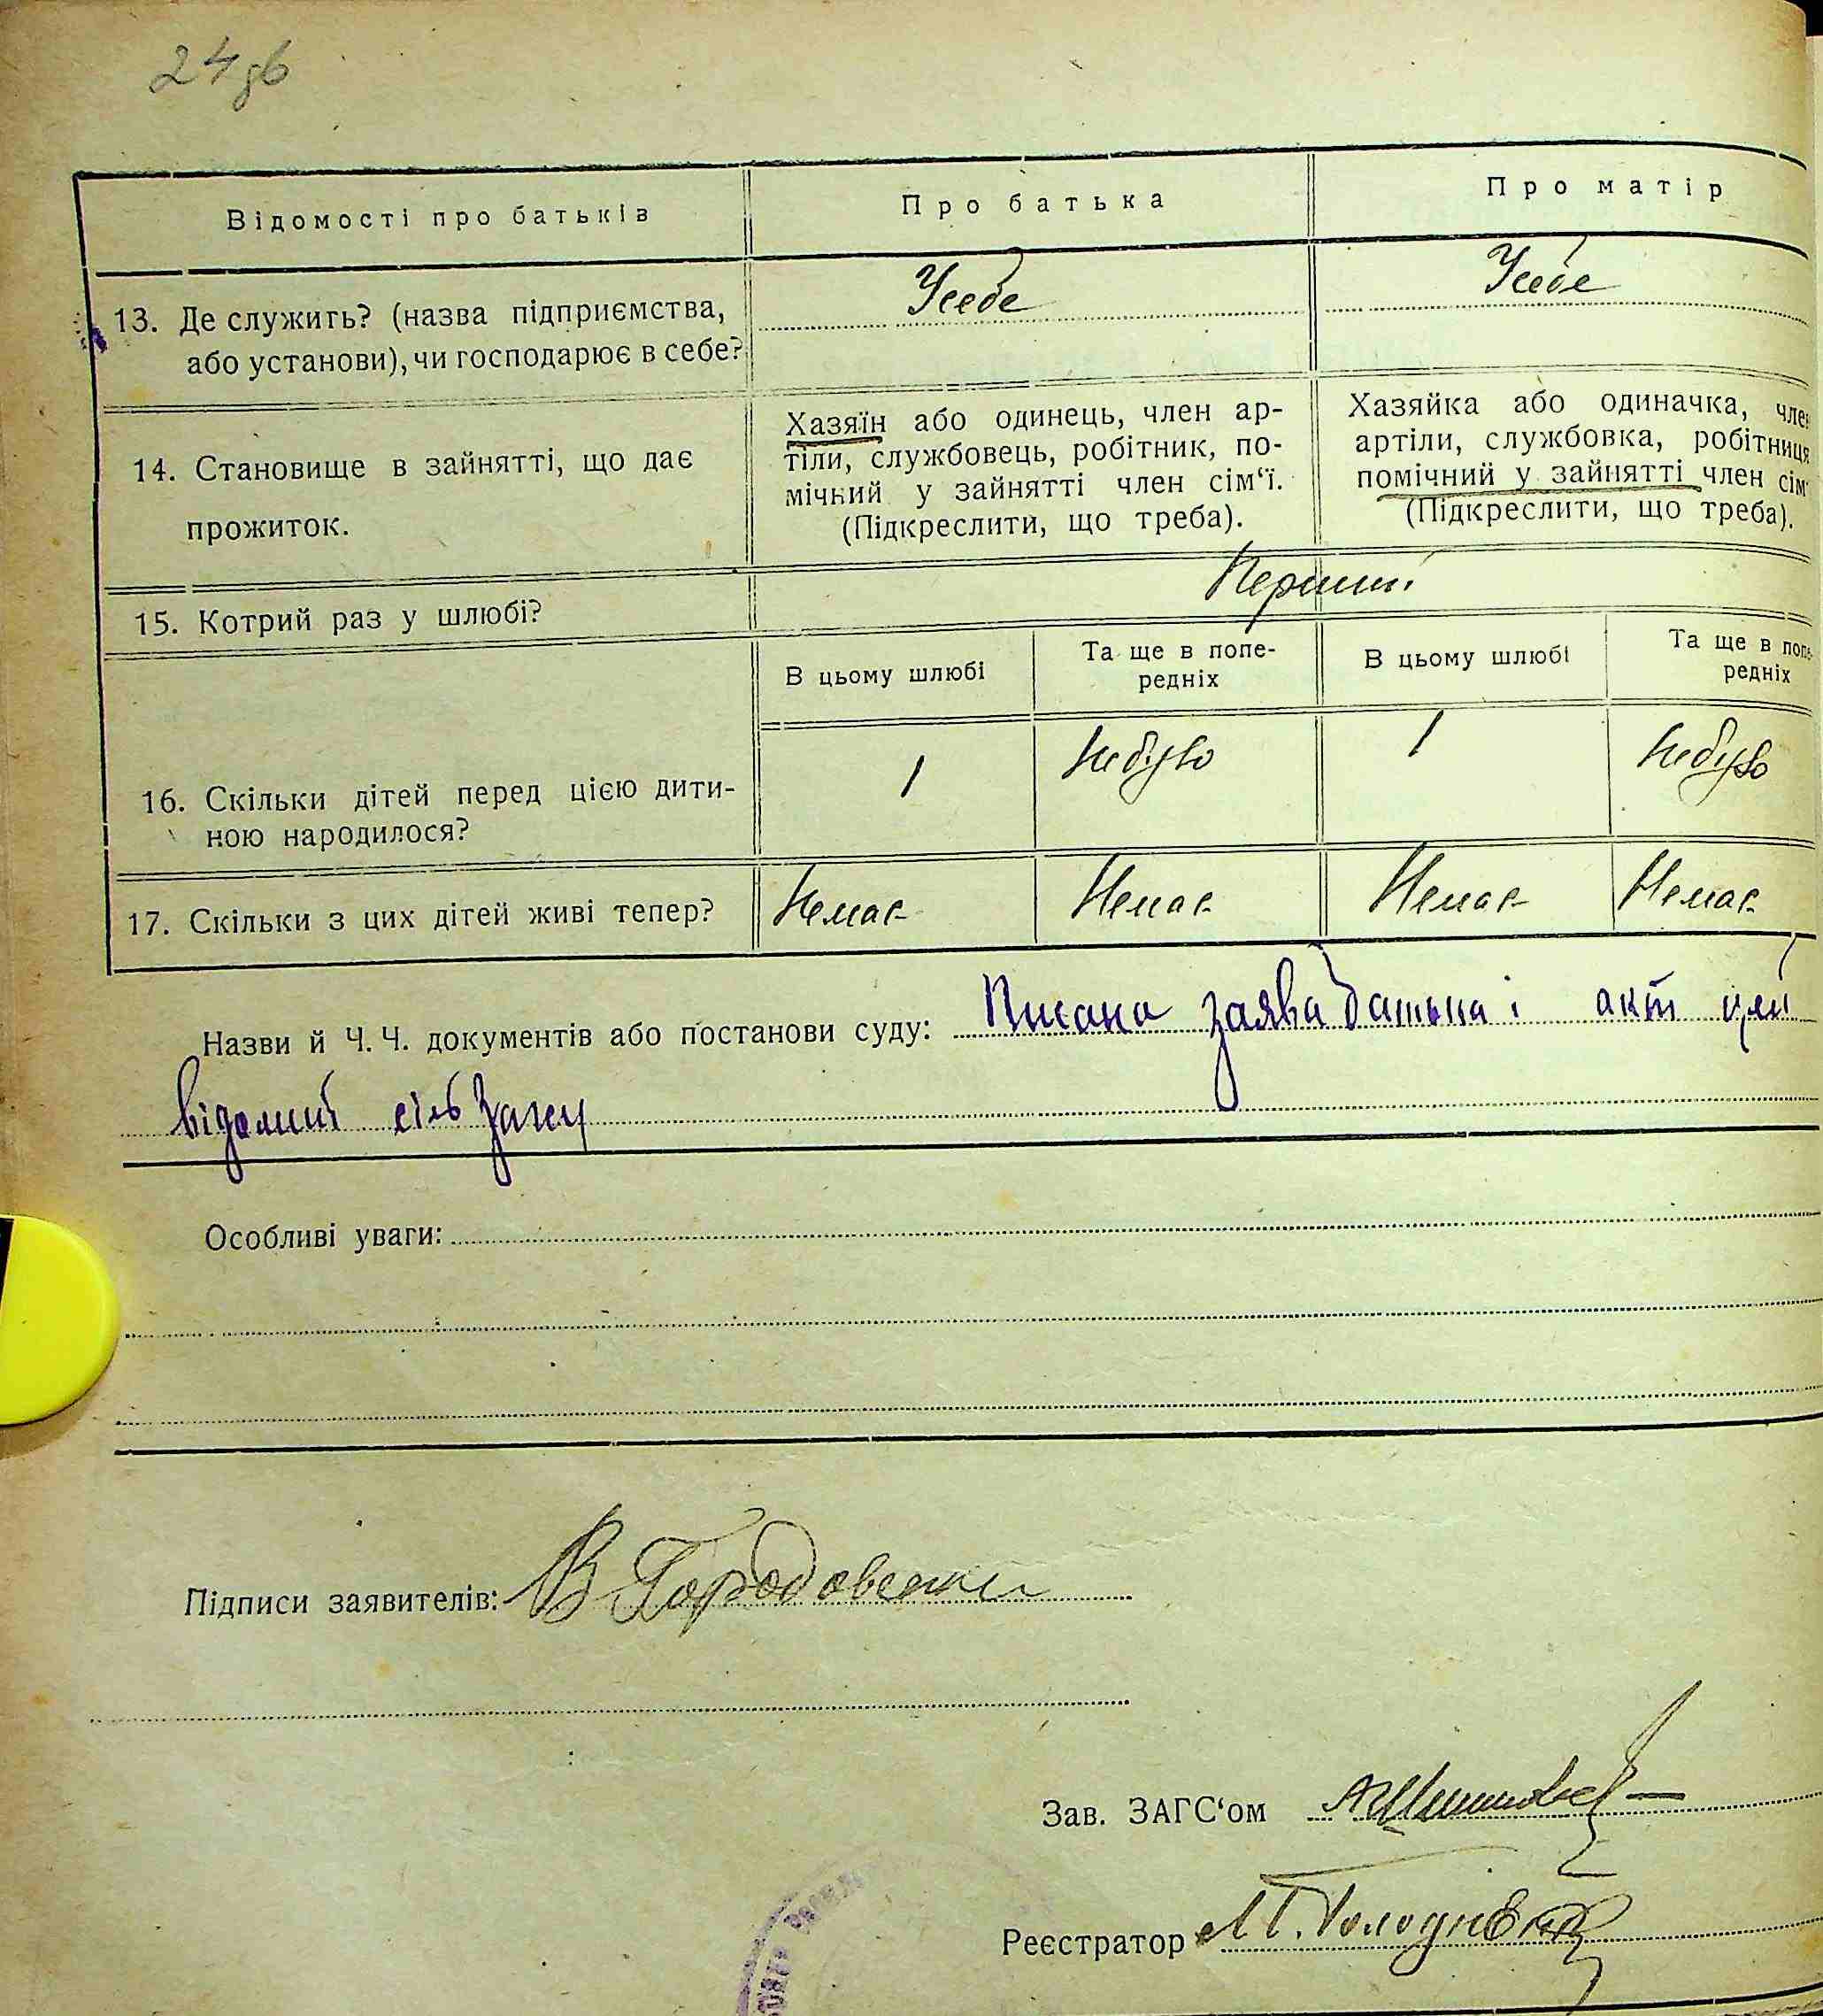 24зв
Відомості про батьків
Про батька
Про матір
13. Де служить? (назва підприємства,
або установи), чи господарює в себе?
Усебе
Усебе
14. Становище в зайнятті, що дає
прожиток.
Хазяїн або одинець, член ар-
тіли, службовець, робітник, по-
мічний у зайнятті член сім‘ї.
(Підкреслити, що треба).
Хазяйка або одиначка, член
артіли, службовка, робітниця
помічний у зайнятті член сім'
(Підкреслити, що треба).
15. Котрий раз у шлюбі?
Перший
В цьому шлюбі
Та ще в попе-
редніх
В цьому шлюбі
Та ще в попе-
редніх
16. Скільки дітей перед цією дити-
ною народилося?
1
Небуло
1
Небуло
17. Скільки з цих дітей живі тепер?
Немає
Немає
Немає
Немає
Назви й Ч. Ч. документів або постанови суду: Писана заява батька і акт цей
відомий сільЗагсу
Особливі уваги:
Підписи заявителів: В Городовенки
Зав. ЗАГС‘ом
Реєстратор